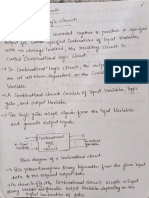 Combinational logic circuit:
connected together to produce a specified
output for certain specified Combinations of Input Variables,
with no storage involved, the resulting circuit is
Called Combinational logic circuit.
→ In Combinational logic circuit, the output Variables
are at all times dependent on the Combination of Input
Variables.
→ A Combinational circuit Consists of Input Variables, logic
gates, and output Variables.
→ The logic gates accept signals from the Input Variables
and generate output signals.
Combinational
logic
Block diagram of a Combinational circuit
→ this process transforms binary Information from the given input
data to the output data.
As shown in fig, the Combinational circuit accepts n-input
binary Variables and output Variables depending on the
logical Combination of gates.